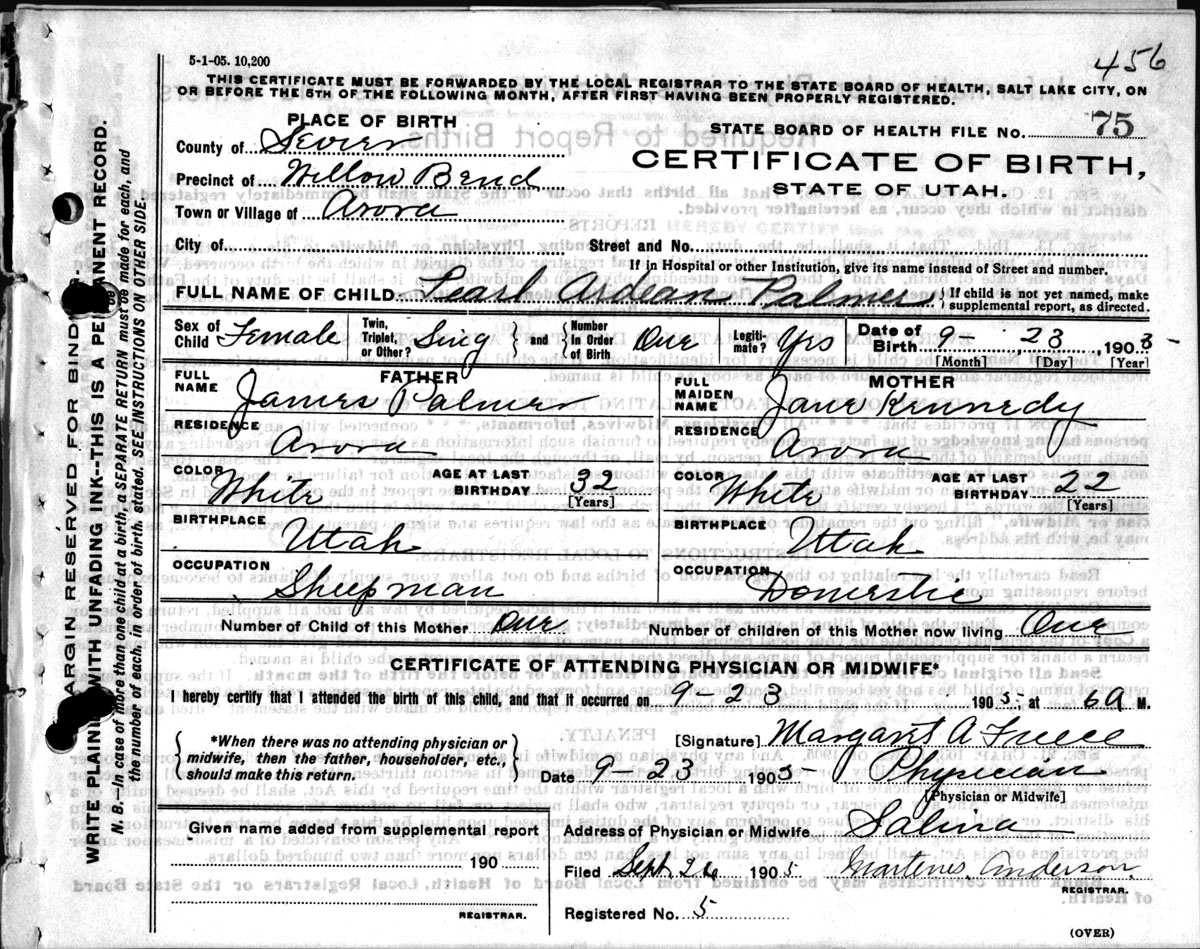 5-1-05. 10,200
456
THIS CERTIFICATE MUST BE FORWARDED BY THE LOCAL REGISTRAR TO THE STATE BOARD OF HEALTH, SALT LAKE CITY, ON
OR BEFORE THE 5TH OF THE FOLLOWING MONTH, AFTER FIRST HAVING BEEN PROPERLY REGISTERED.
PLACE OF BIRTH
STATE BOARD OF HEALTH FILE NO. 75
County of Sevier
CERTIFICATE OF BIRTH,
Precinct of Willow Bend
STATE OF UTAH.
Town or Village of Arora
City of
Street and No.
If in Hospital or other Institution, give its name instead of Street and number.
FULL NAME OF CHILD Pearl Ardean Palmer { If child is not yet named, make
supplemental report, as directed.
Sex of Child Female
Twin, Triplet, or Other? Sing } and { Number in Order of Birth One
Legitimate? Yes
Date of Birth 9-, 23, 190
[Month] [Day] [Year]
FATHER
FULL NAME James Palmer
MOTHER
FULL MAIDEN NAME Jane Kennedy
RESIDENCE Arora
RESIDENCE Arora
COLOR White AGE AT LAST BIRTHDAY 32 [Years]
COLOR White AGE AT LAST BIRTHDAY 22 [Years]
BIRTHPLACE Utah
BIRTHPLACE Utah
OCCUPATION Sheepman
OCCUPATION Domestic
Number of Child of this Mother One
Number of children of this Mother now living One
CERTIFICATE OF ATTENDING PHYSICIAN OR MIDWIFE*
I hereby certify that I attended the birth of this child, and that it occurred on 9-23 1905, at 6 A M.
{ *When there was no attending physician or
midwife, then the father, householder, etc.,
should make this return. }
[Signature] Margaret A
Date 9-23 1905 Physician
[Physician or Midwife]
Given name added from supplemental report
Address of Physician or Midwife Salina
190
Filed Sept. 26 1905 Anderson
REGISTRAR.
REGISTRAR.
Registered No. 5
(OVER)
MARGIN RESERVED FOR BINDING.
WRITE PLAINLY WITH UNFADING INK--THIS IS A PERMANENT RECORD.
N. B.--In case of more than one child at a birth, a SEPARATE RETURN must be made for each, and
the number of each, in order of birth, stated. SEE INSTRUCTIONS ON OTHER SIDE.